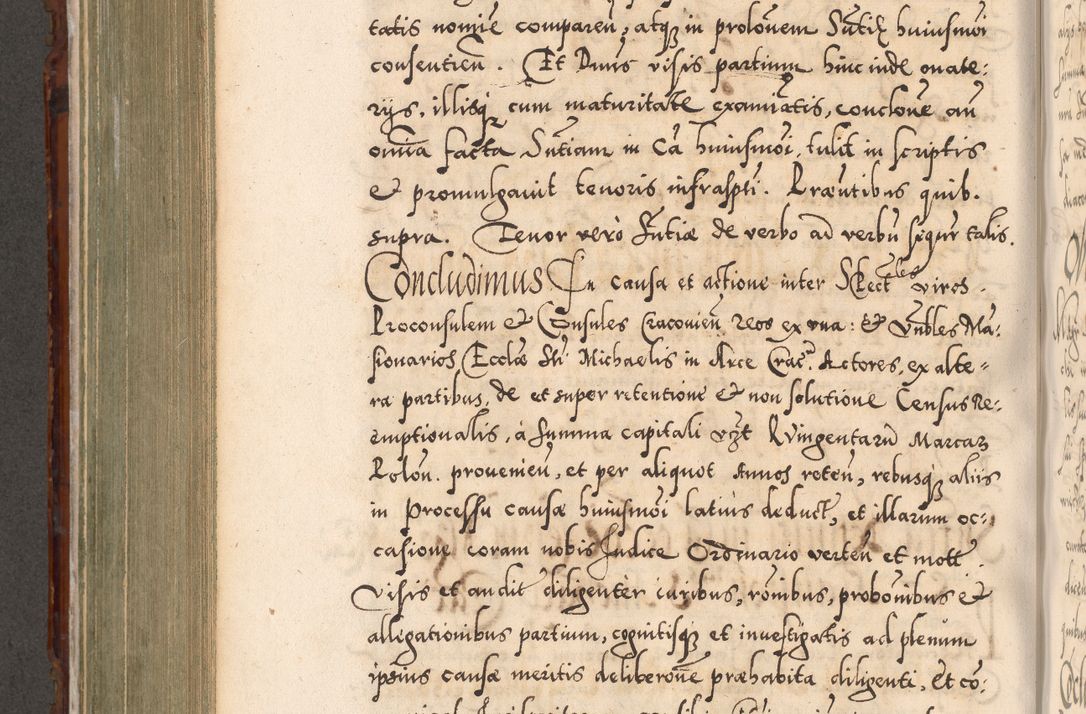 tatis nomie comparen, atq3 in prolonem Sntie huiusmoi
consentien. Et Dnus visis partium hinc inde onate:
rijs, illisq3 cum maturitate examiatis, conclone an
omnia facta Sntiam in Ca huiusmoi, tulit in scriptis
et promulgavit tenoris infraspti. Praentibus quib.
supra. Tenor verò sntiæ de verbo ad verbu sequr talis.
Concludimus In causa et actione inter Spect les viros
Proconsulem et Consules Cracovien Reos ex vna: et Vnbles Ma:
sionarios Ecclæ Sti Michaelis in Arce Crac. Actores, ex alte=
ra partibus, de et super retentione et non solutione Census Re:
emptionalis, à summa capitali vzt Quingentaru Marcar
Polon. provenien, et per aliquot Annos reten, rebusq3 aliis
in processu causæ huiusmoi latius deduct, et illarum oc:
casione coram nobis Judice Ordinario verten et mott.
Visis et audit diligenter iuribus, ronibus, probonibus et
allegationibus partium, cognitisq3 et investigatis ad plenum
ipsius causæ meritis deliberone præhabita diligenti, Et co: